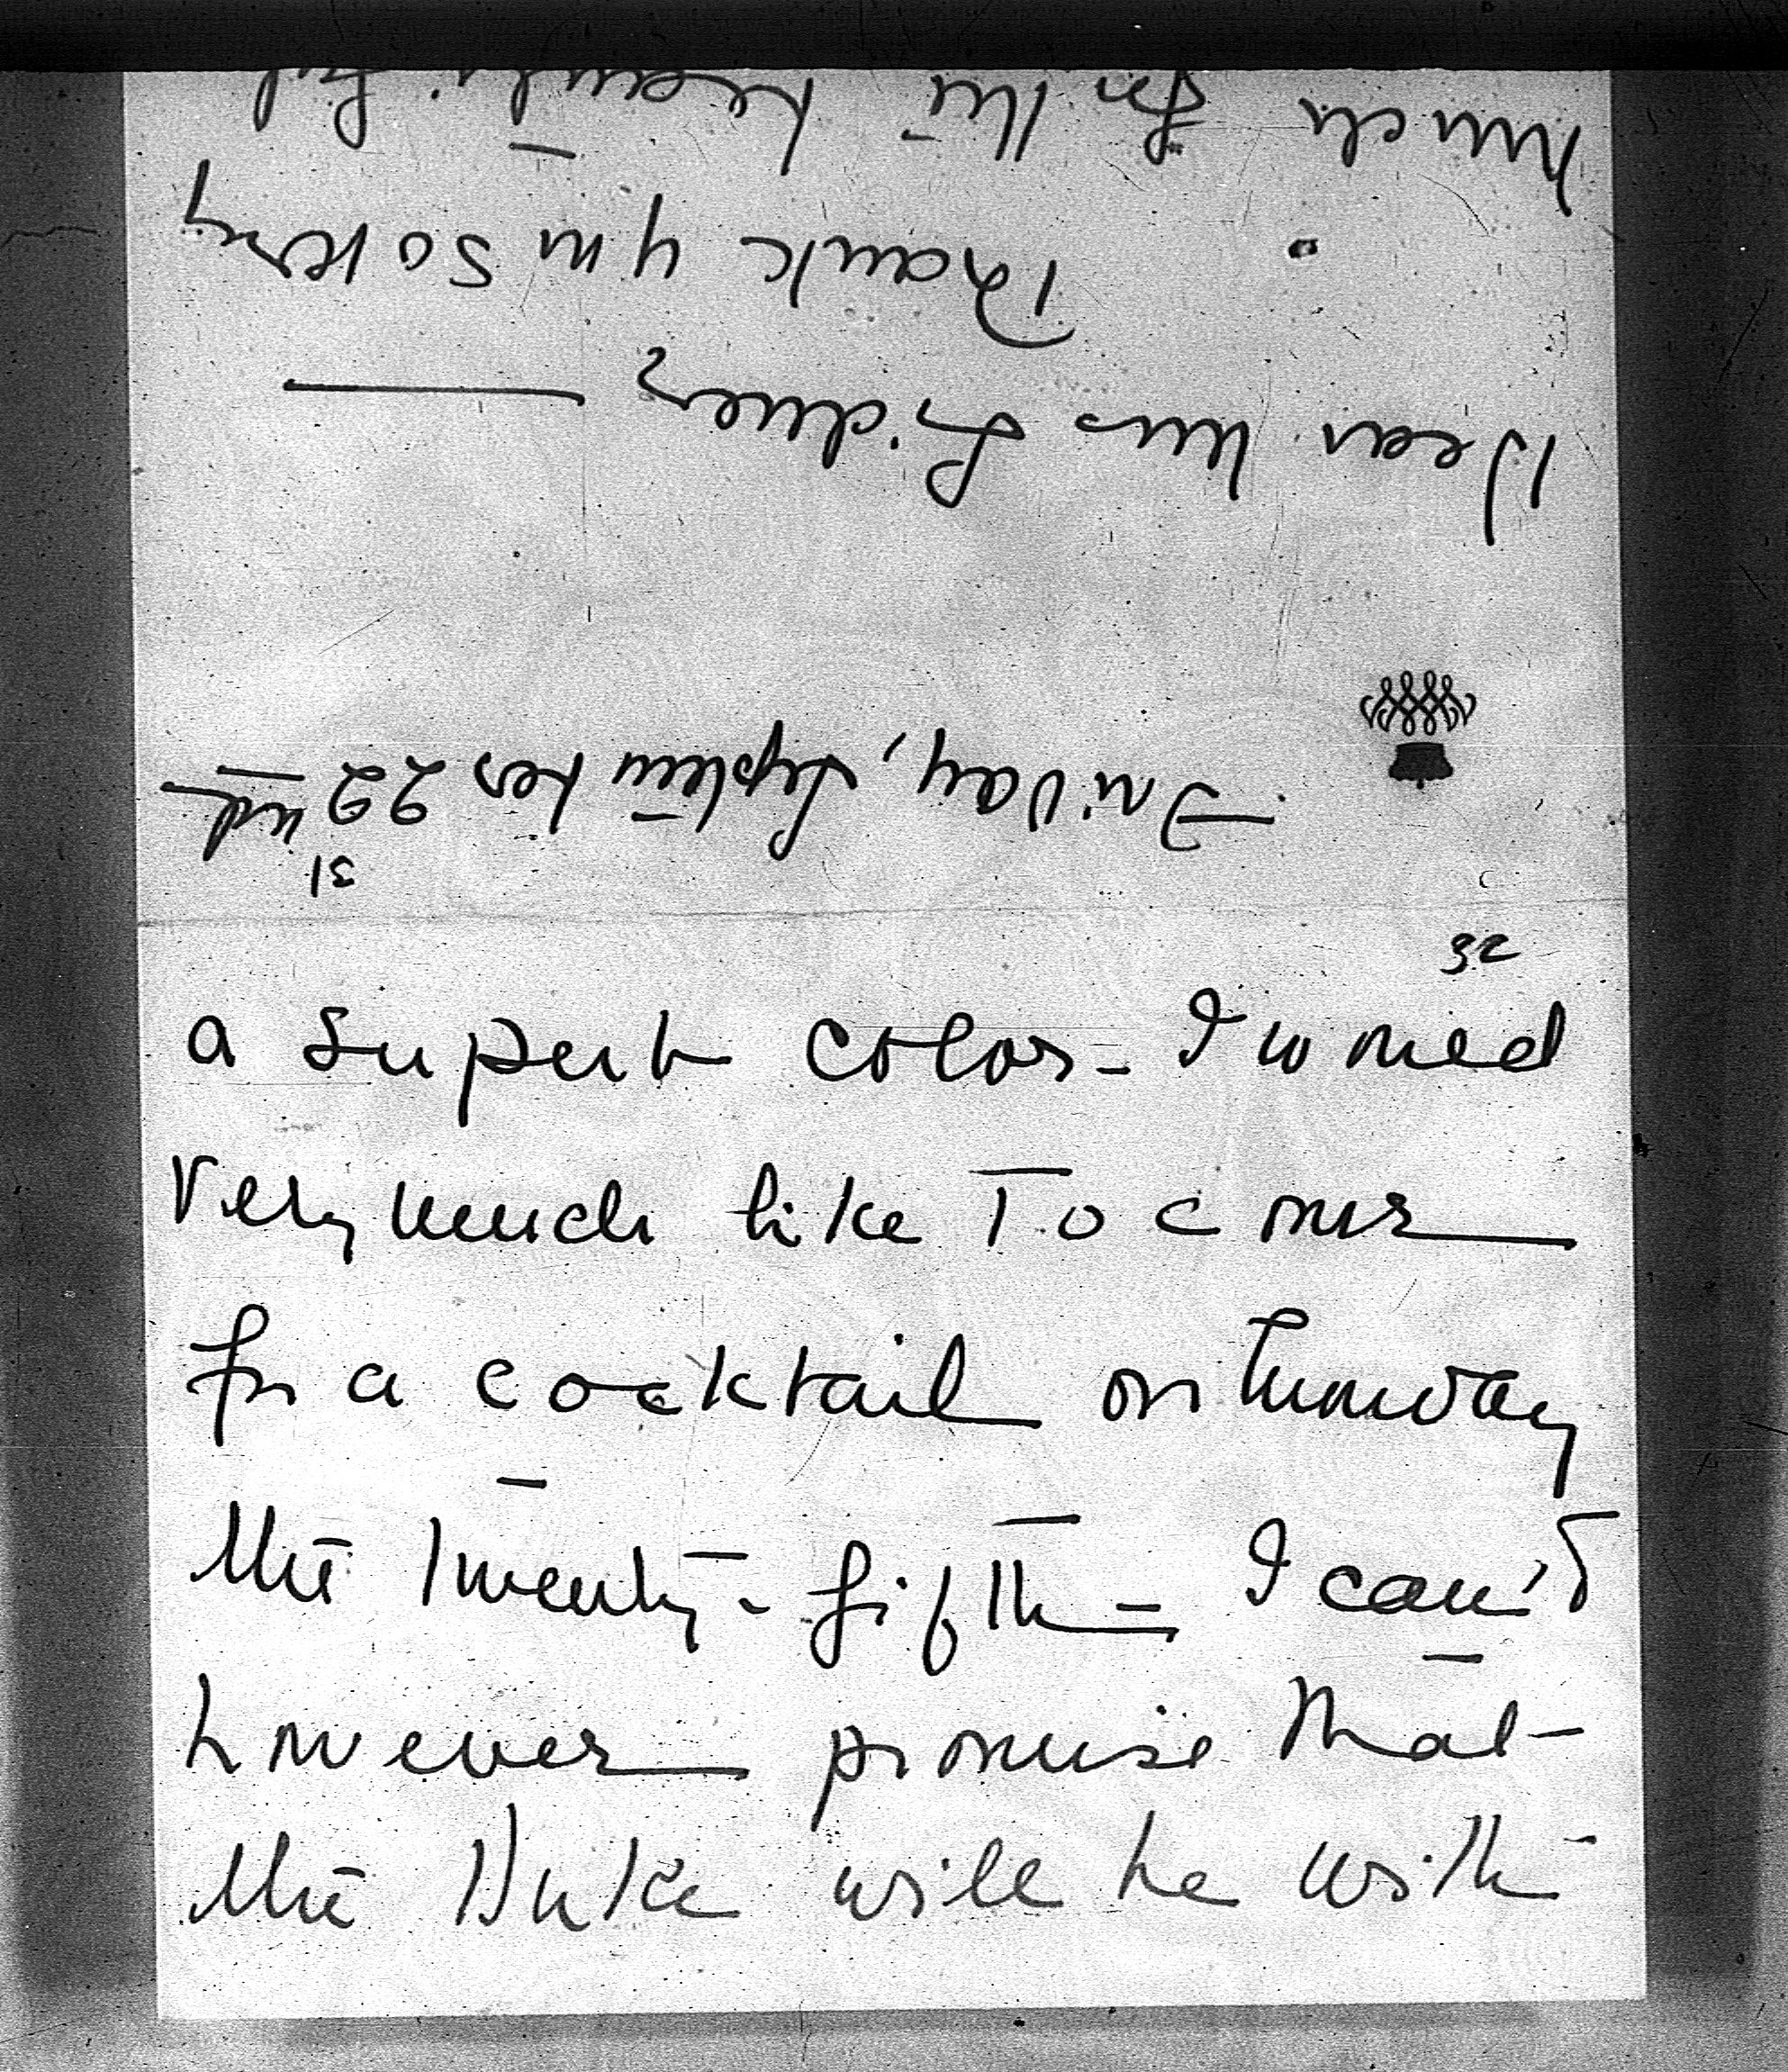 31
Friday, September 22nd
Dear Mrs Gidney
Thank you so very
much for the beautiful
32
a superb color - I would
very much like to come
for a cocktail on Thursday
the twenty-fifth - I can't
however promise that
the Duke will be with